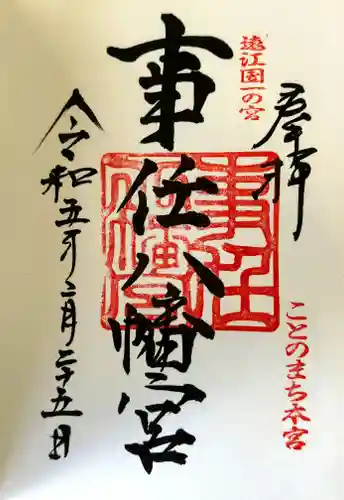 遠江国一の宮
奉拝
ことのまち本宮
事任八幡宮
令和五年二月二十五日